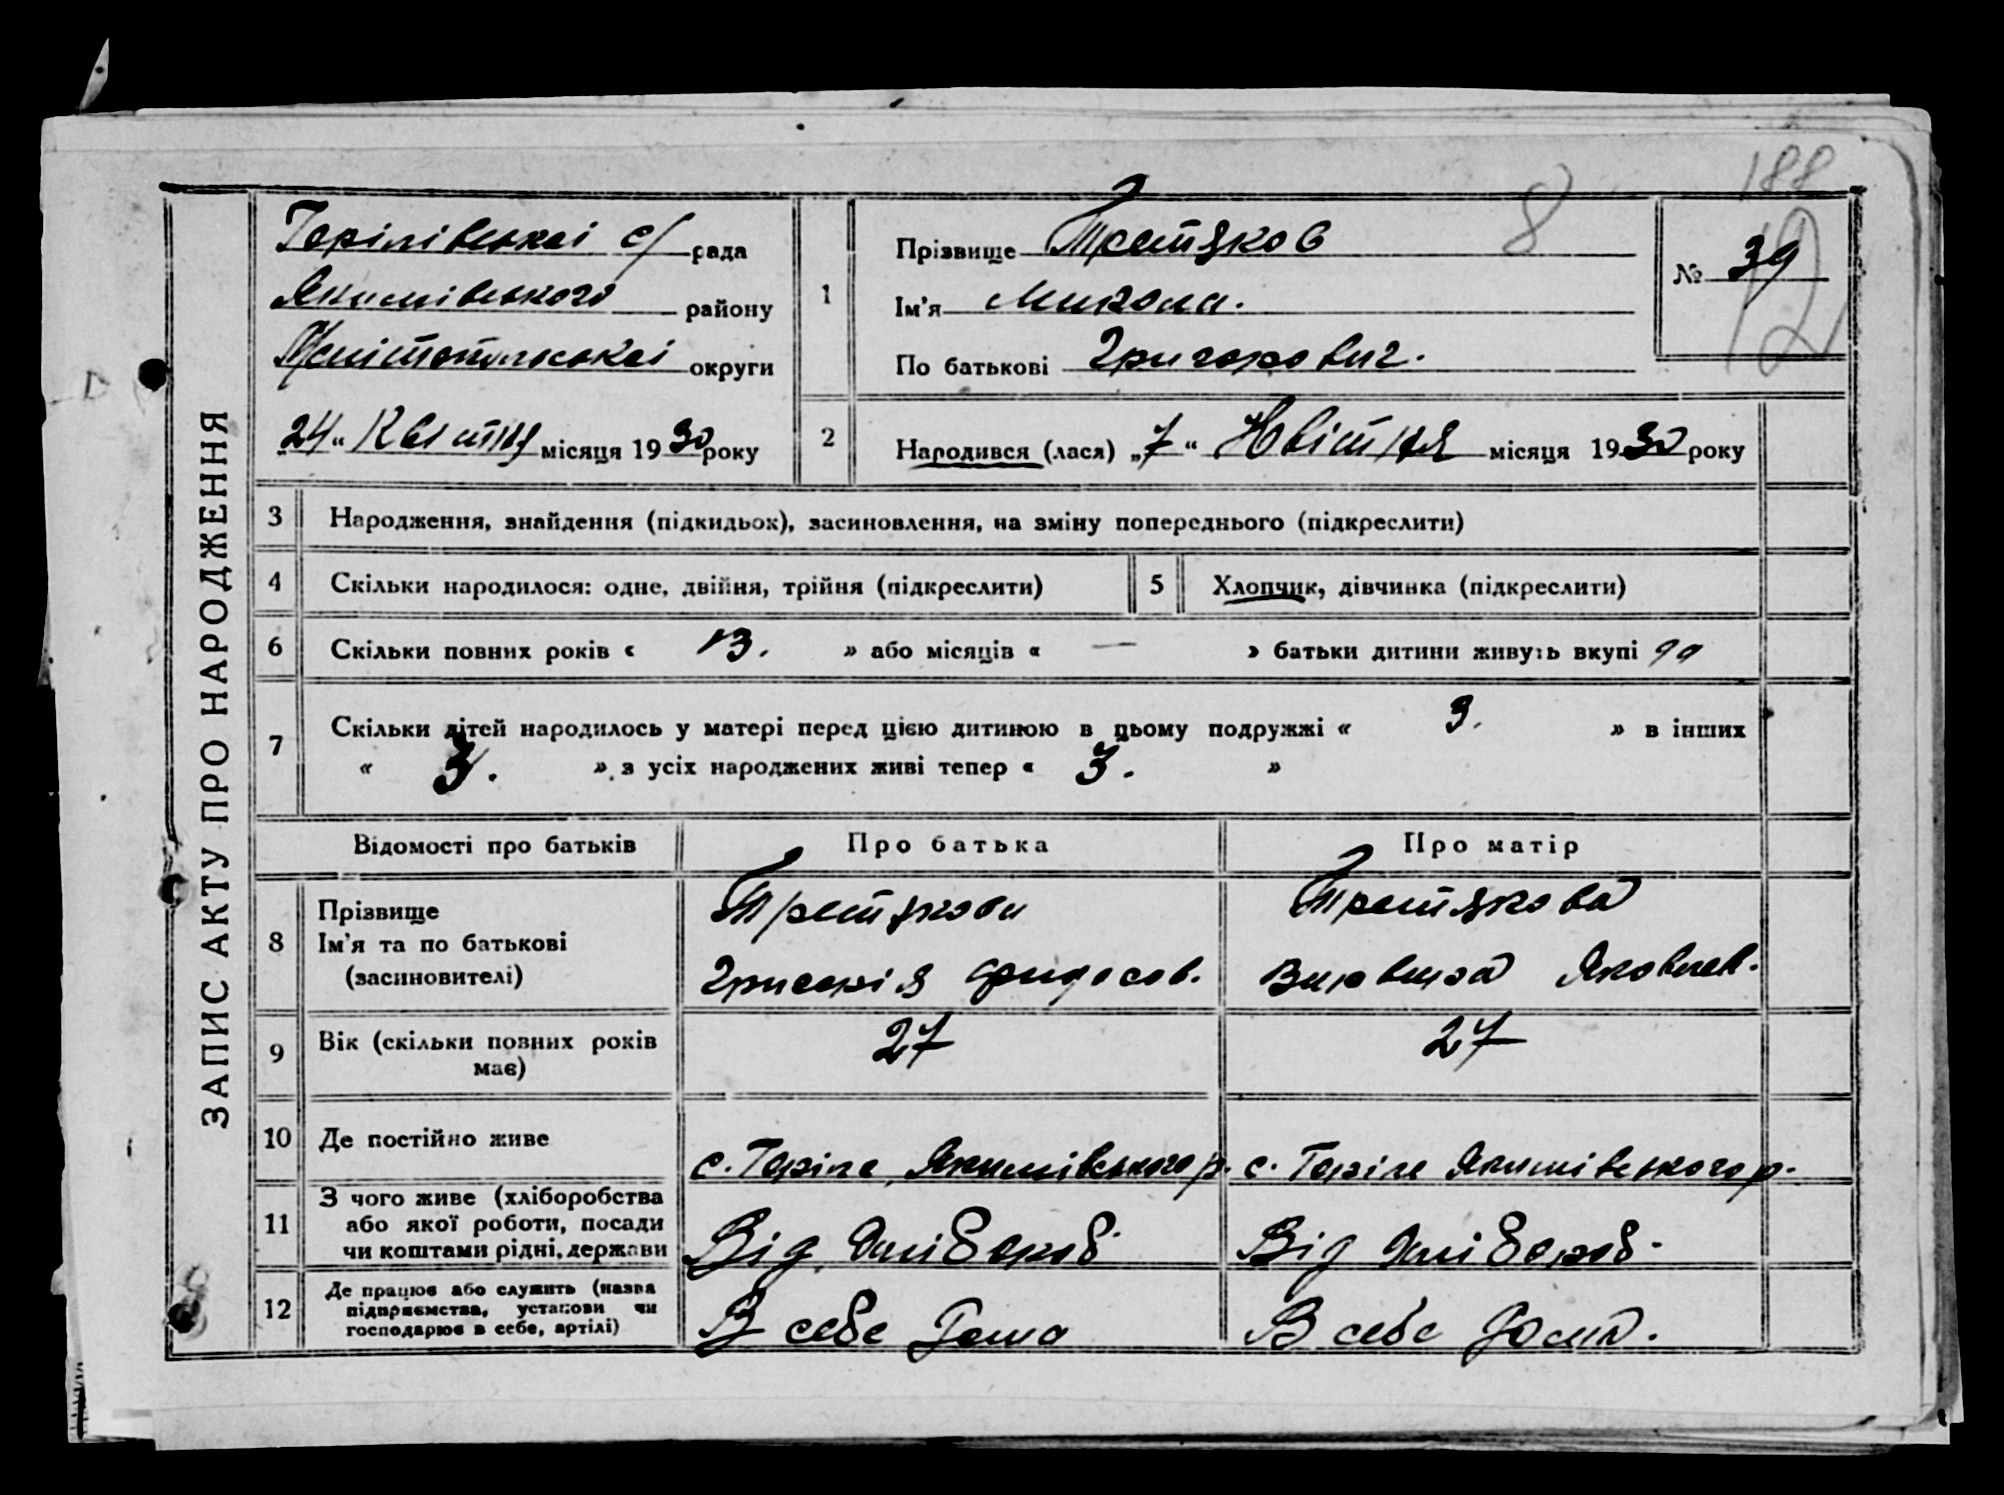 188
8
12
ЗАПИС АКТУ ПРО НАРОДЖЕННЯ
Горілівської с/рада
Якимівського району
Мелітопольської округи
„24“ Квітня місяця 1930 року
1
Прізвище Третяков
Ім'я Микола.
По батькові Григорович.
№ 39
2
Народився (лася) „7“ Квітня місяця 1930 року
3 Народження, знайдення (підкидьок), засиновлення, на зміну попереднього (підкреслити)
4 Скільки народилося: одне, двійня, трійня (підкреслити)
5 Хлопчик, дівчинка (підкреслити)
6 Скільки повних років « 13. » або місяців « — » батьки дитини живуть вкупі
7 Скільки дітей народилось у матері перед цією дитиною в цьому подружжі « 3. » в інших
« 3. » з усіх народжених живі тепер « 3. »
Відомості про батьків
Про батька
Про матір
8 Прізвище
Ім'я та по батькові
(засиновителі)
Третякови
Григорія
Третякова
Яковлев.
9 Вік (скільки повних років
має)
27
27
10 Де постійно живе
с. Горіле, Якимівського р.
с. Горіле Якимівського р.
11 З чого живе (хліборобства
або якої роботи, посади
чи коштами рідні, держави
Від хліборов.
Від хліборов.
12 Де працює або служить (назва
підприємства, установи чи
господарює в себе, артілі)
В себе дома
В себе дома.